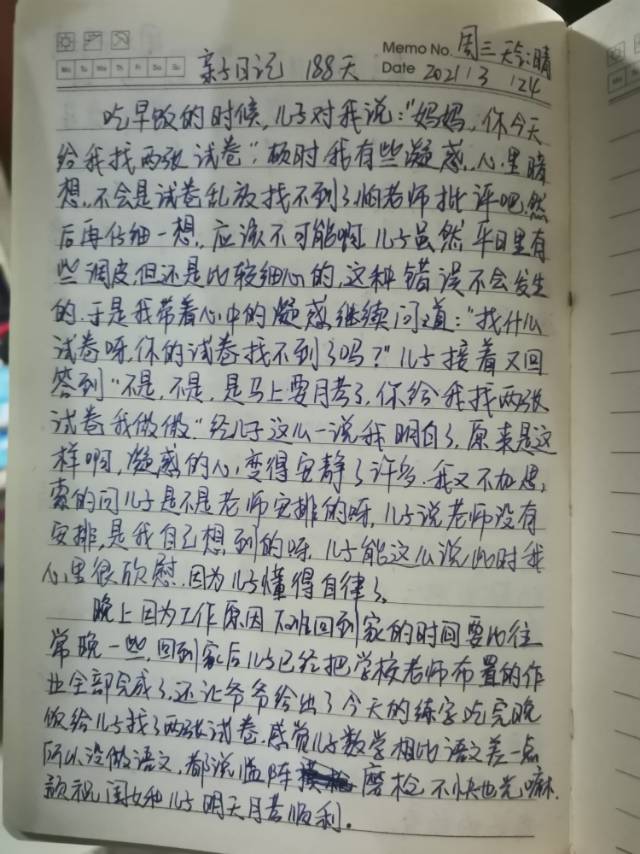 Memo No. 周三 天气:晴
亲子日记 188天 Date 2021.3.24
吃早饭的时候,儿子对我说:"妈妈,你今天
给我找两张试卷",顿时我有些凝惑,心里暗
想,不会是试卷乱放找不到了,怕老师批评吧,然
后再仔细一想,应该不可能啊,儿子虽然平日里有
些调皮,但还是比较细心的,这种错误不会发生
的.于是我带着心中的凝惑继续问道:"找什么
试卷呀,你的试卷找不到了吗?"儿子接着又回
答到"不是,不是,是马上要月考了,你给我找两张
试卷我做做."经儿子这么一说我明白了,原来是这
样啊,凝惑的心,变得安静了许多.我又不加思
索的问儿子是不是老师安排的呀,儿子说老师没有
安排,是我自己想到的呀,儿子能这么说此时我
心里很欣慰,因为儿子懂得自律了。
晚上因为工作原因 回到家的时间要比往
常晚一些,回到家后儿子已经把学校老师布置的作
业全部完成了,还让爷爷给出了今天的练字,吃完晚
饭给儿子找了两张试卷,感觉儿子数学相比语文差一点
所以没做语文,都说临阵磨枪,不快也光嘛.
预祝闺女和儿子明天月考顺利。